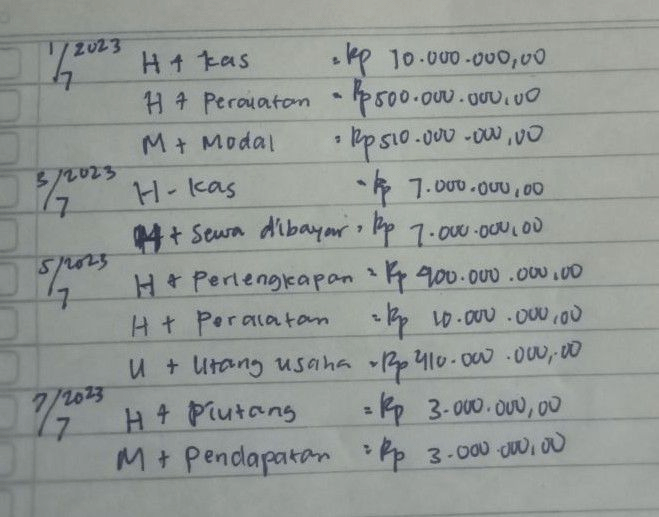 1/7 2023 H + kas = Rp 10.000.000,00
H + Peralatan = Rp 500.000.000,00
M + Modal = Rp 510.000.000,00
3/7 2023 H - kas = Rp 7.000.000,00
H + Sewa dibayar = Rp 7.000.000,00
5/7 2023 H + Perlengkapan = Rp 400.000.000,00
H + Peralatan = Rp 10.000.000,00
U + Utang usaha = Rp 410.000.000,00
7/7 2023 H + Piutang = Rp 3.000.000,00
M + Pendapatan = Rp 3.000.000,00